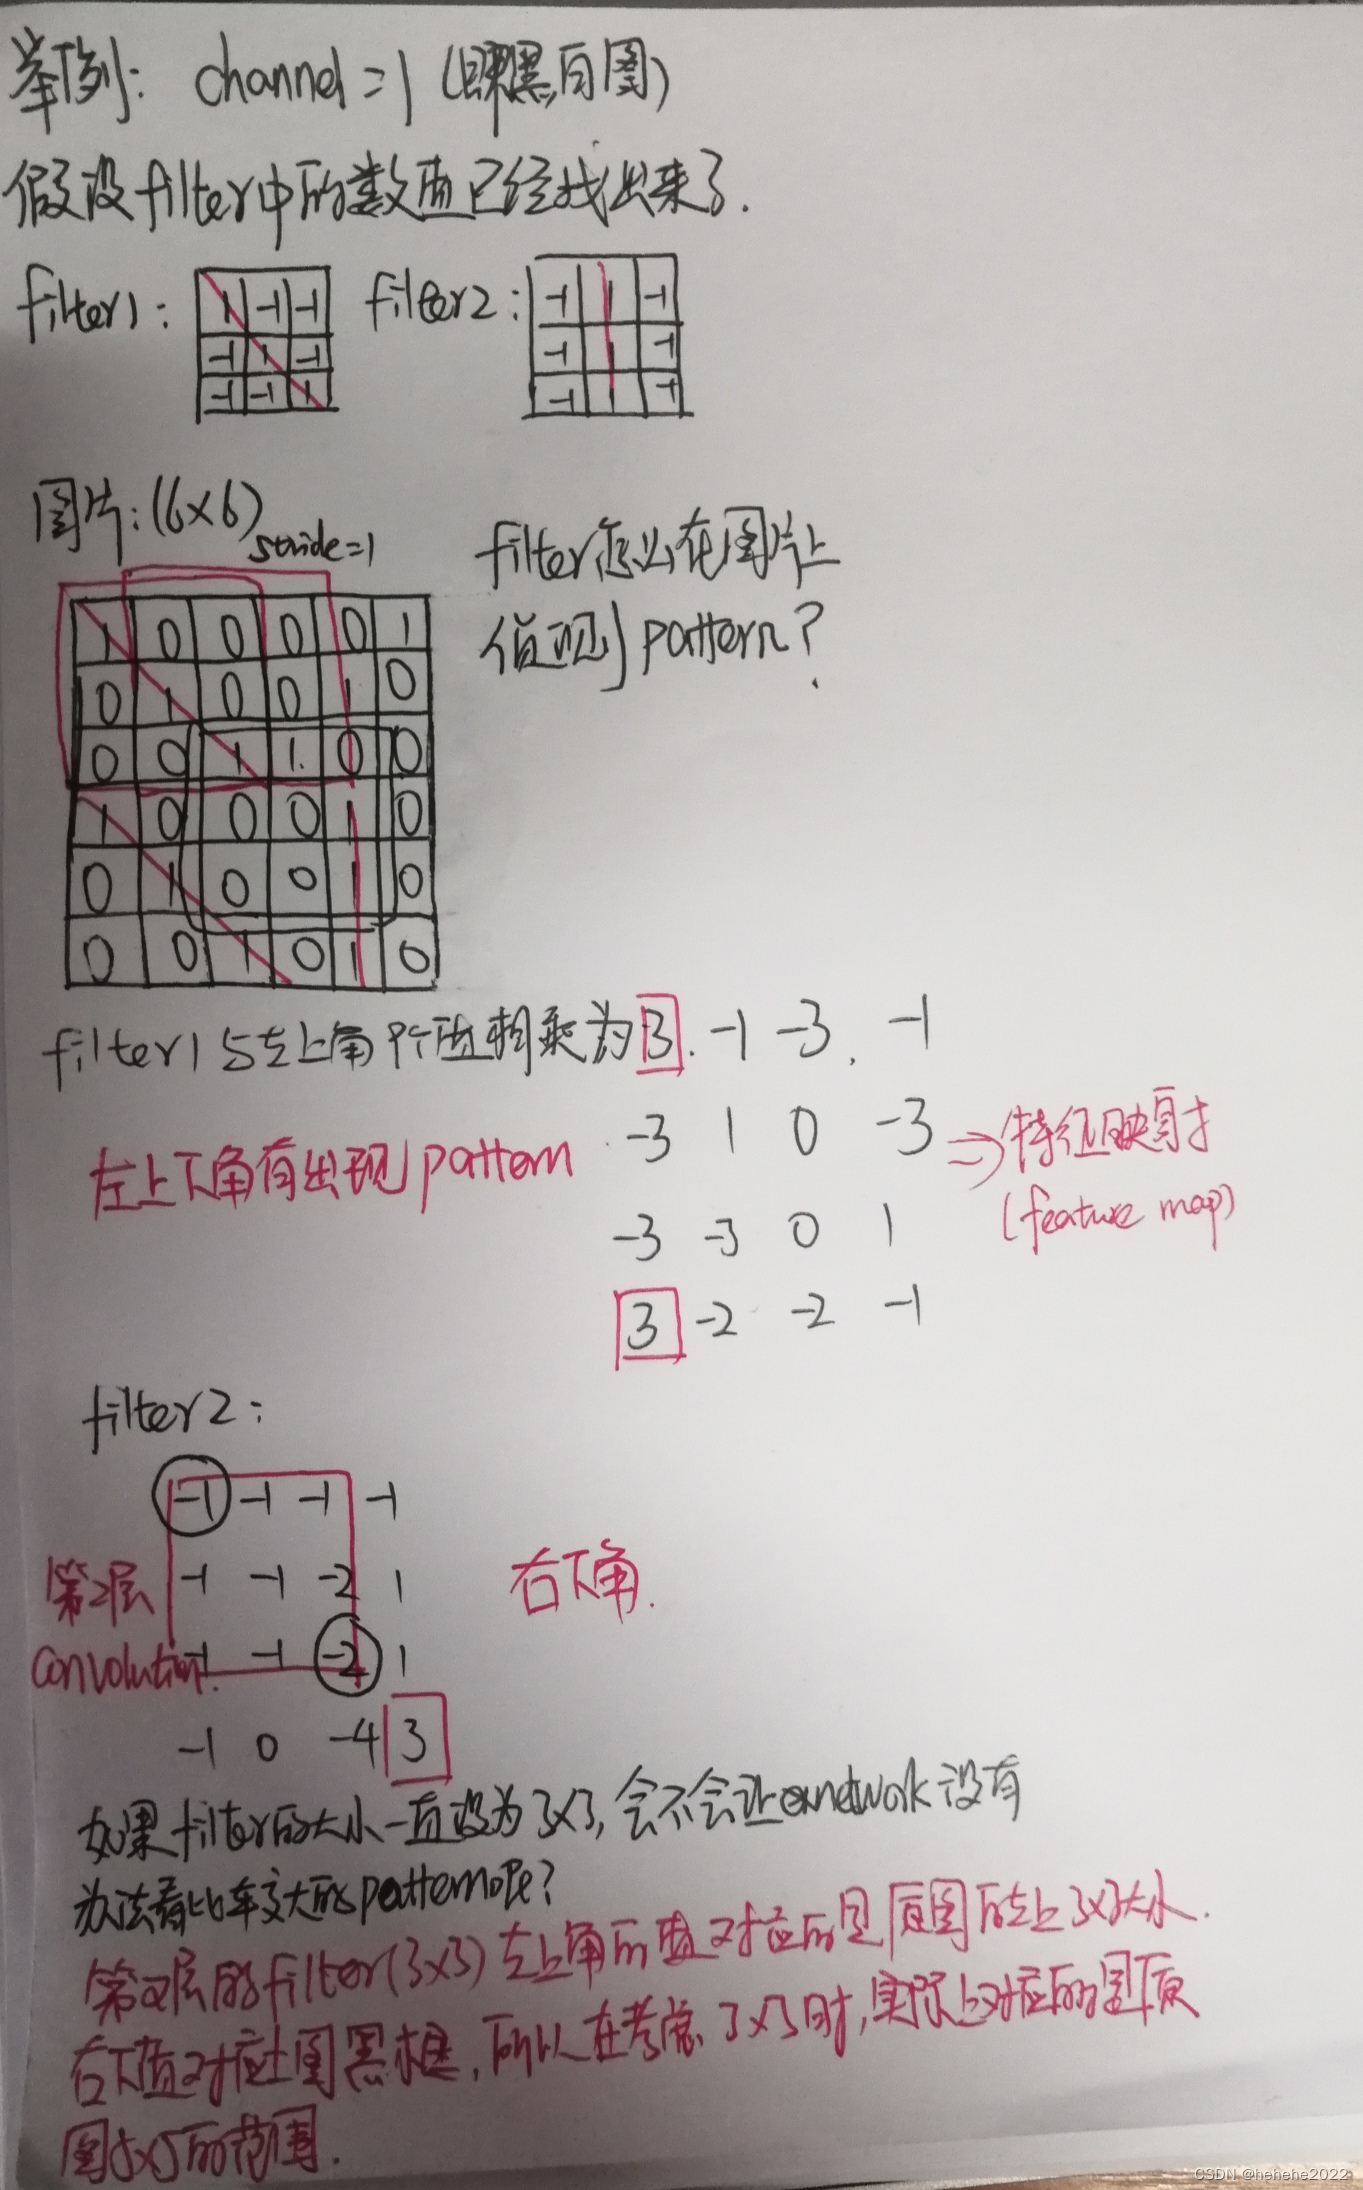 举例: channel=1 (即黑白图)
假设filter中的数值已经找出来了.
filter1: filter2:
1 -1 -1 -1 1 -1
-1 1 -1 -1 1 -1
-1 -1 1 -1 1 -1
图片:(6×6)
stride=1
filter怎么在图片上
值现 pattern?
1 0 0 0 0 1
0 1 0 0 1 0
0 0 1 1 0 0
1 0 0 0 1 0
0 1 0 0 1 0
0 0 1 0 1 0
filter1与左上角 相乘为 3. -1 -3. -1
左上下角有出现pattern -3 1 0 -3 => 特征映射
(feature map)
-3 -3 0 1
3 -2 -2 -1
filter2:
-1 -1 -1 -1
第2层 -1 -1 -2 1 右下角.
convolution. -1 -1 -2 1
-1 0 -4 3
如果filter的大小一直设为3×3, 会不会让network没有
办法看比较大的pattern呢?
第2层的filter(3×3)左上角的值对应的是原图的左上3×3大小.
右下值对应上图黑框, 所以在考虑3×3时, 实际上对应的是原
图5×5的范围.
CSDN @hehehe2022